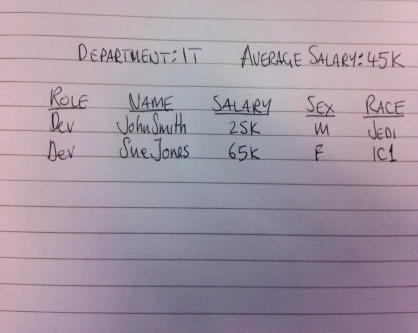 DEPARTMENT: IT AVERAGE SALARY: 45K
ROLE NAME SALARY SEX RACE
Dev John Smith 25K M JEDI
Dev Sue Jones 65K F IC1